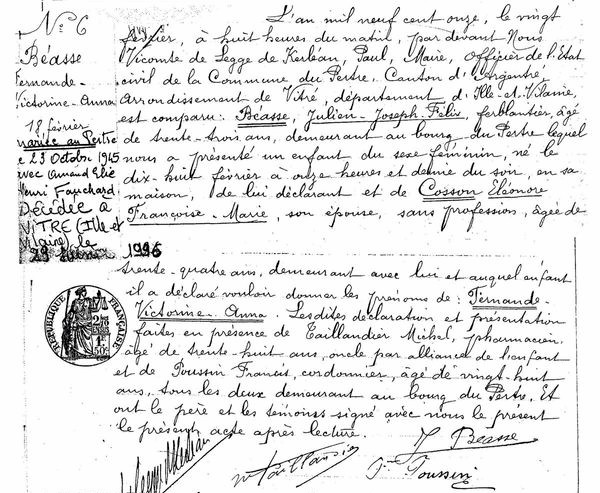 N° 6
Béasse
Fernande-
Victorine-Anna
18 février
mariée au Pertre
le 23 Octobre 1945
avec Armand Elie
Henri Fauchard
Décédée à
VITRE (Ille et
Vilaine) le
29
1996
L'an mil neuf cent onze, le vingt
février, à huit heures du matin, par devant Nous
Vicomte de Legge de Kerléan, Paul, Maire, Officier de l'Etat
civil de la Commune du Pertre, Canton d'Argentré,
Arrondissement de Vitré, département d'Ille-et-Vilaine,
est comparu: Béasse, Julien-Joseph-Félix, ferblantier, âgé
de trente-trois ans, demeurant au bourg du Pertre lequel
nous a présenté un enfant du sexe féminin, né le
dix-huit février à onze heures et demie du soir, en sa
maison, de lui déclarant et de Cosson Eléonore
Françoise-Marie, son épouse, sans profession, âgée de
trente-quatre ans, demeurant avec lui et auquel enfant
il a déclaré vouloir donner les prénoms de: Fernande-
Victorine-Anna. Lesdites déclaration et présentation
faites en présence de Taillandier Michel, pharmacien,
âgé de trente-huit ans, oncle par alliance de l'enfant
et de Toussin Francis, cordonnier, âgé de vingt-huit
ans, tous les deux demeurant au bourg du Pertre. Et
ont le père et les témoins signé avec nous le présent
le présent acte après lecture.
J Béasse
F Toussin
REPUBLIQUE FRANÇAISE